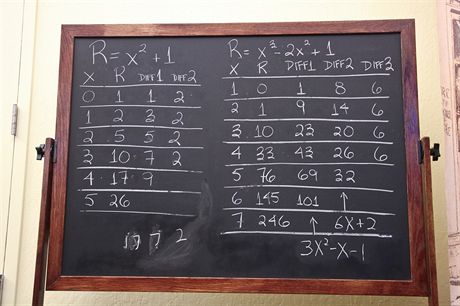 R = x² + 1
X R DIFF1 DIFF2
0 1 1 2
1 2 3 2
2 5 5 2
3 10 7 2
4 17 9
5 26
7 2
R = x³ - 2x² + 1
X R DIFF1 DIFF2 DIFF3
1 0 1 8 6
2 1 9 14 6
3 10 23 20 6
4 33 43 26 6
5 76 69 32
6 145 101 ↑
7 246 ↑ 6X+2
3X²-X-1